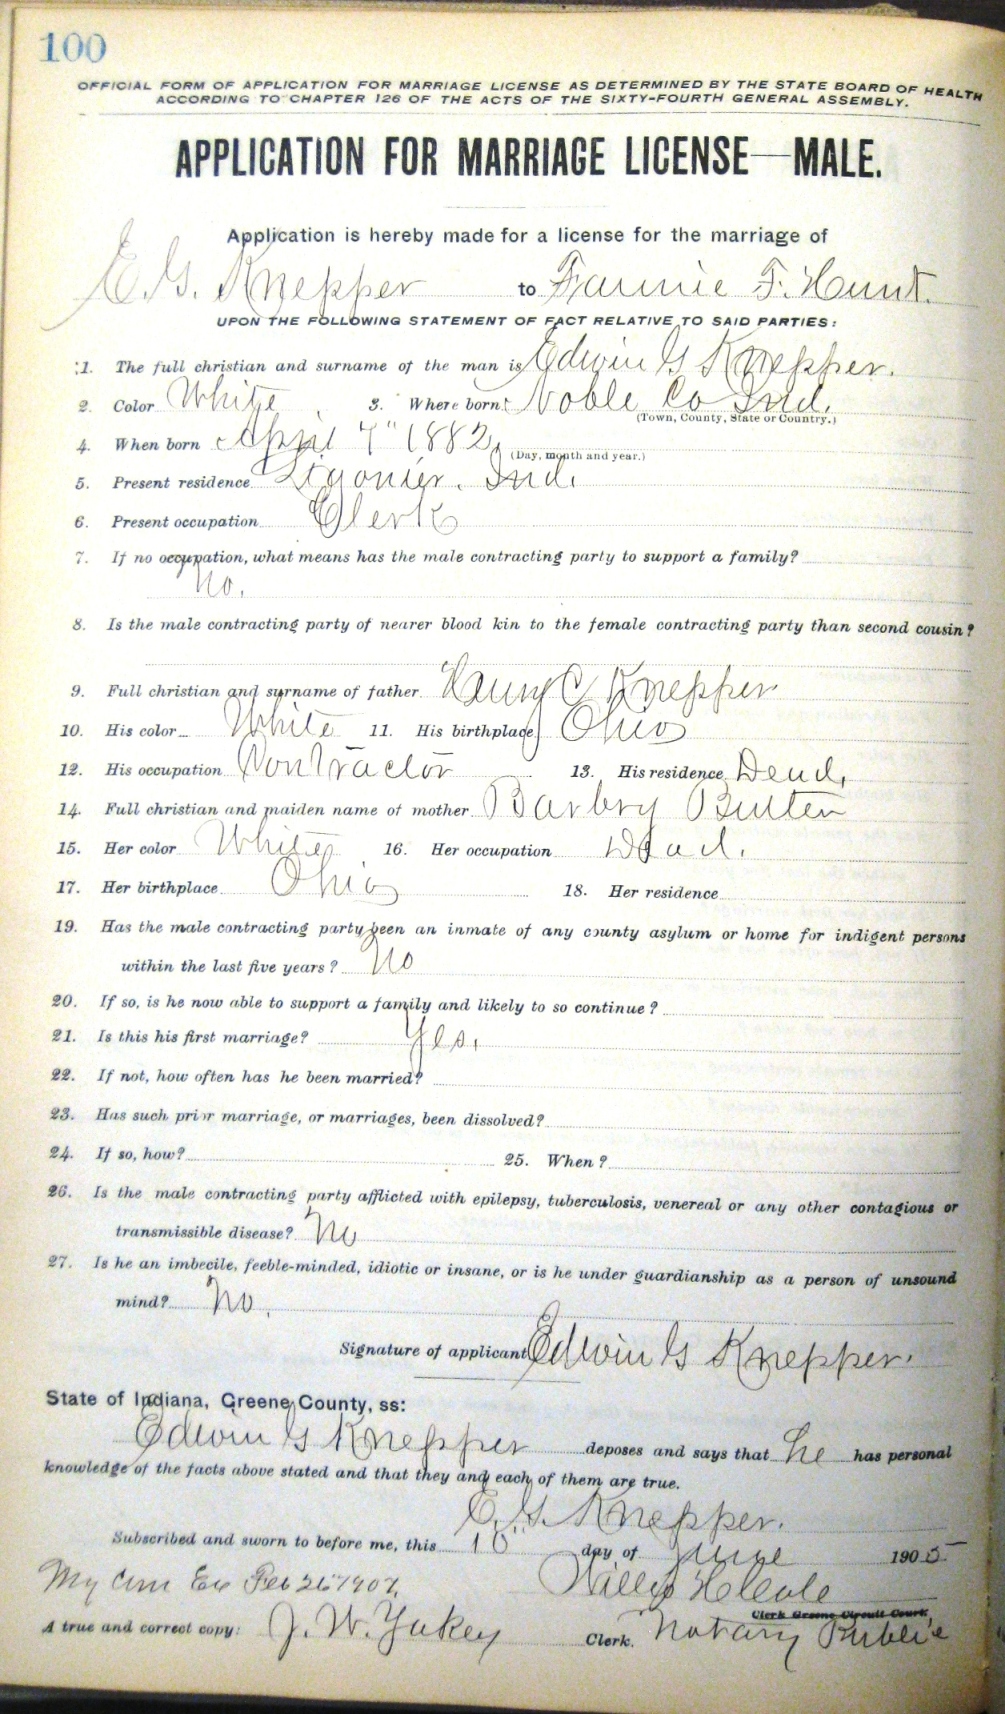 100
OFFICIAL FORM OF APPLICATION FOR MARRIAGE LICENSE AS DETERMINED BY THE STATE BOARD OF HEALTH
ACCORDING TO CHAPTER 126 OF THE ACTS OF THE SIXTY-FOURTH GENERAL ASSEMBLY.
APPLICATION FOR MARRIAGE LICENSE—MALE.
Application is hereby made for a license for the marriage of
E. G. Knepper to Fannie F. Hunt.
UPON THE FOLLOWING STATEMENT OF FACT RELATIVE TO SAID PARTIES:
1. The full christian and surname of the man is Edwin G Knepper.
2. Color White 3. Where born: Noble Co Ind.
(Town, County, State or Country.)
4. When born April 7" 1882.
(Day, month and year.)
5. Present residence Ligonier. Ind.
6. Present occupation Clerk
7. If no occupation, what means has the male contracting party to support a family?
No.
8. Is the male contracting party of nearer blood kin to the female contracting party than second cousin?
9. Full christian and surname of father Henry C Knepper
10. His color White 11. His birthplace Ohio
12. His occupation Contractor 13. His residence Dead.
14. Full christian and maiden name of mother Barbry
15. Her color White 16. Her occupation Dead.
17. Her birthplace Ohio 18. Her residence
19. Has the male contracting party been an inmate of any county asylum or home for indigent persons
within the last five years? No
20. If so, is he now able to support a family and likely to so continue?
21. Is this his first marriage? Yes.
22. If not, how often has he been married?
23. Has such prior marriage, or marriages, been dissolved?
24. If so, how? 25. When?
26. Is the male contracting party afflicted with epilepsy, tuberculosis, venereal or any other contagious or
transmissible disease? No
27. Is he an imbecile, feeble-minded, idiotic or insane, or is he under guardianship as a person of unsound
mind? No.
Signature of applicant Edwin G Knepper.
State of Indiana, Greene County, ss:
Edwin G Knepper deposes and says that he has personal
knowledge of the facts above stated and that they and each of them are true.
E. G. Knepper.
Subscribed and sworn to before me, this 10" day of June 1905
My Com Ex Feb 26 1907,
Clerk Greene Circuit Court.
A true and correct copy: J. W. Yakey Clerk. Notary Public